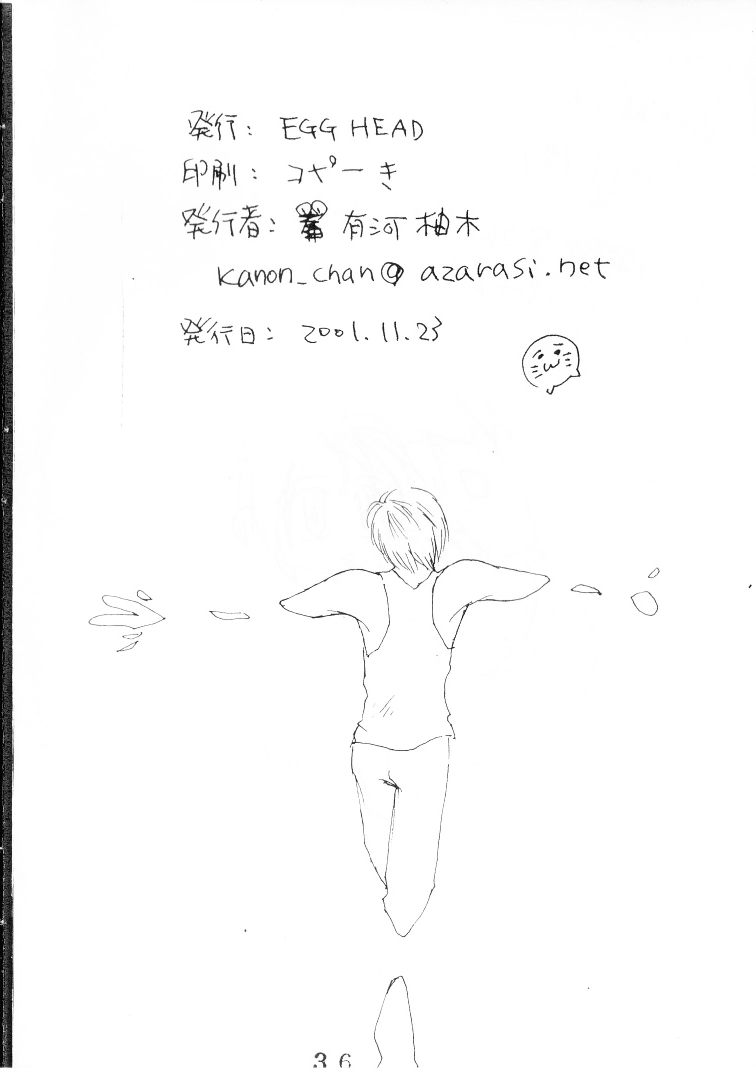 発行: EGG HEAD
印刷: コピーき
発行者: 有河 柚木
kanon_chan@azarasi.net
発行日: 2001.11.23
36